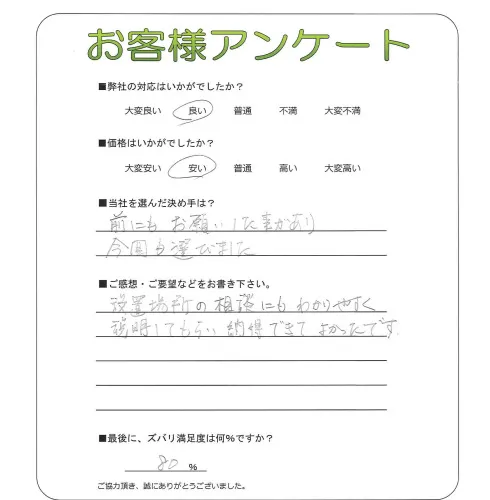 お客様アンケート
■弊社の対応はいかがでしたか？
大変良い 良い 普通 不満 大変不満
■価格はいかがでしたか？
大変安い 安い 普通 高い 大変高い
■当社を選んだ決め手は？
前にもお願いした事があり
今回も選びました
■ご感想・ご要望などをお書き下さい。
設置場所の相談にもわかりやすく
説明してもらい納得できてよかったです。
■最後に、ズバリ満足度は何%ですか？
80 %
ご協力頂き、誠にありがとうございました。